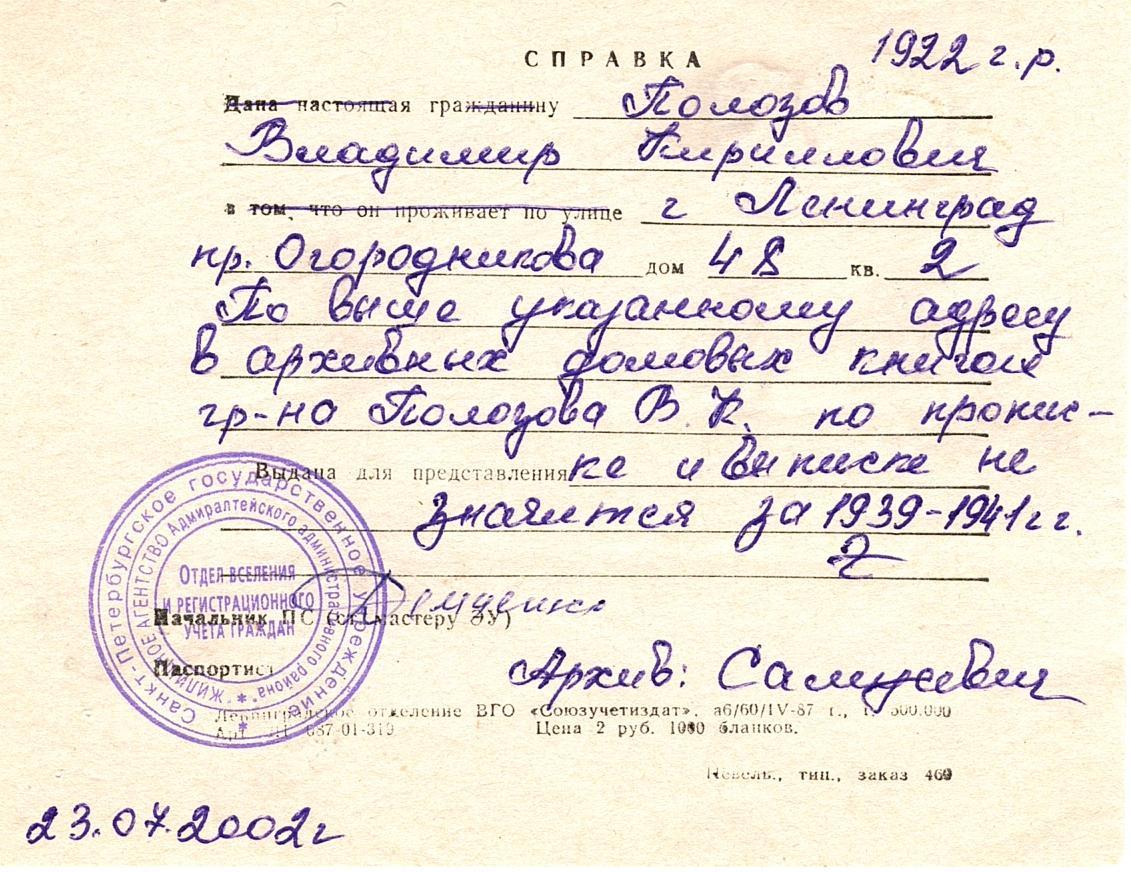 СПРАВКА
1922 г.р.
Дана настоящая гражданину Полозов
Владимир Кириллович
в том, что он проживает по улице г Ленинград
пр. Огородникова дом 48 кв. 2
По выше указанному адресу
в архивных домовых книгах
гр-на Полозова В. К. по пропис-
Выдана для представления ке и выписке не
значится за 1939-1941 гг.
Начальник ПС (ст. мастеру ЭУ)
Паспортист
Архив: Самусевич
Ленинградское отделение ВГО «Союзучетиздат», аб/60/IV-87 г., т. 500.000
Арт. 687-01-319 Цена 2 руб. 1000 бланков.
Невель., тип., заказ 460
23.07.2002г
Санкт-Петербургское государственное учреждение
ЖИЛИЩНОЕ АГЕНТСТВО Адмиралтейского административного района
ОТДЕЛ ВСЕЛЕНИЯ
И РЕГИСТРАЦИОННОГО
УЧЕТА ГРАЖДАН